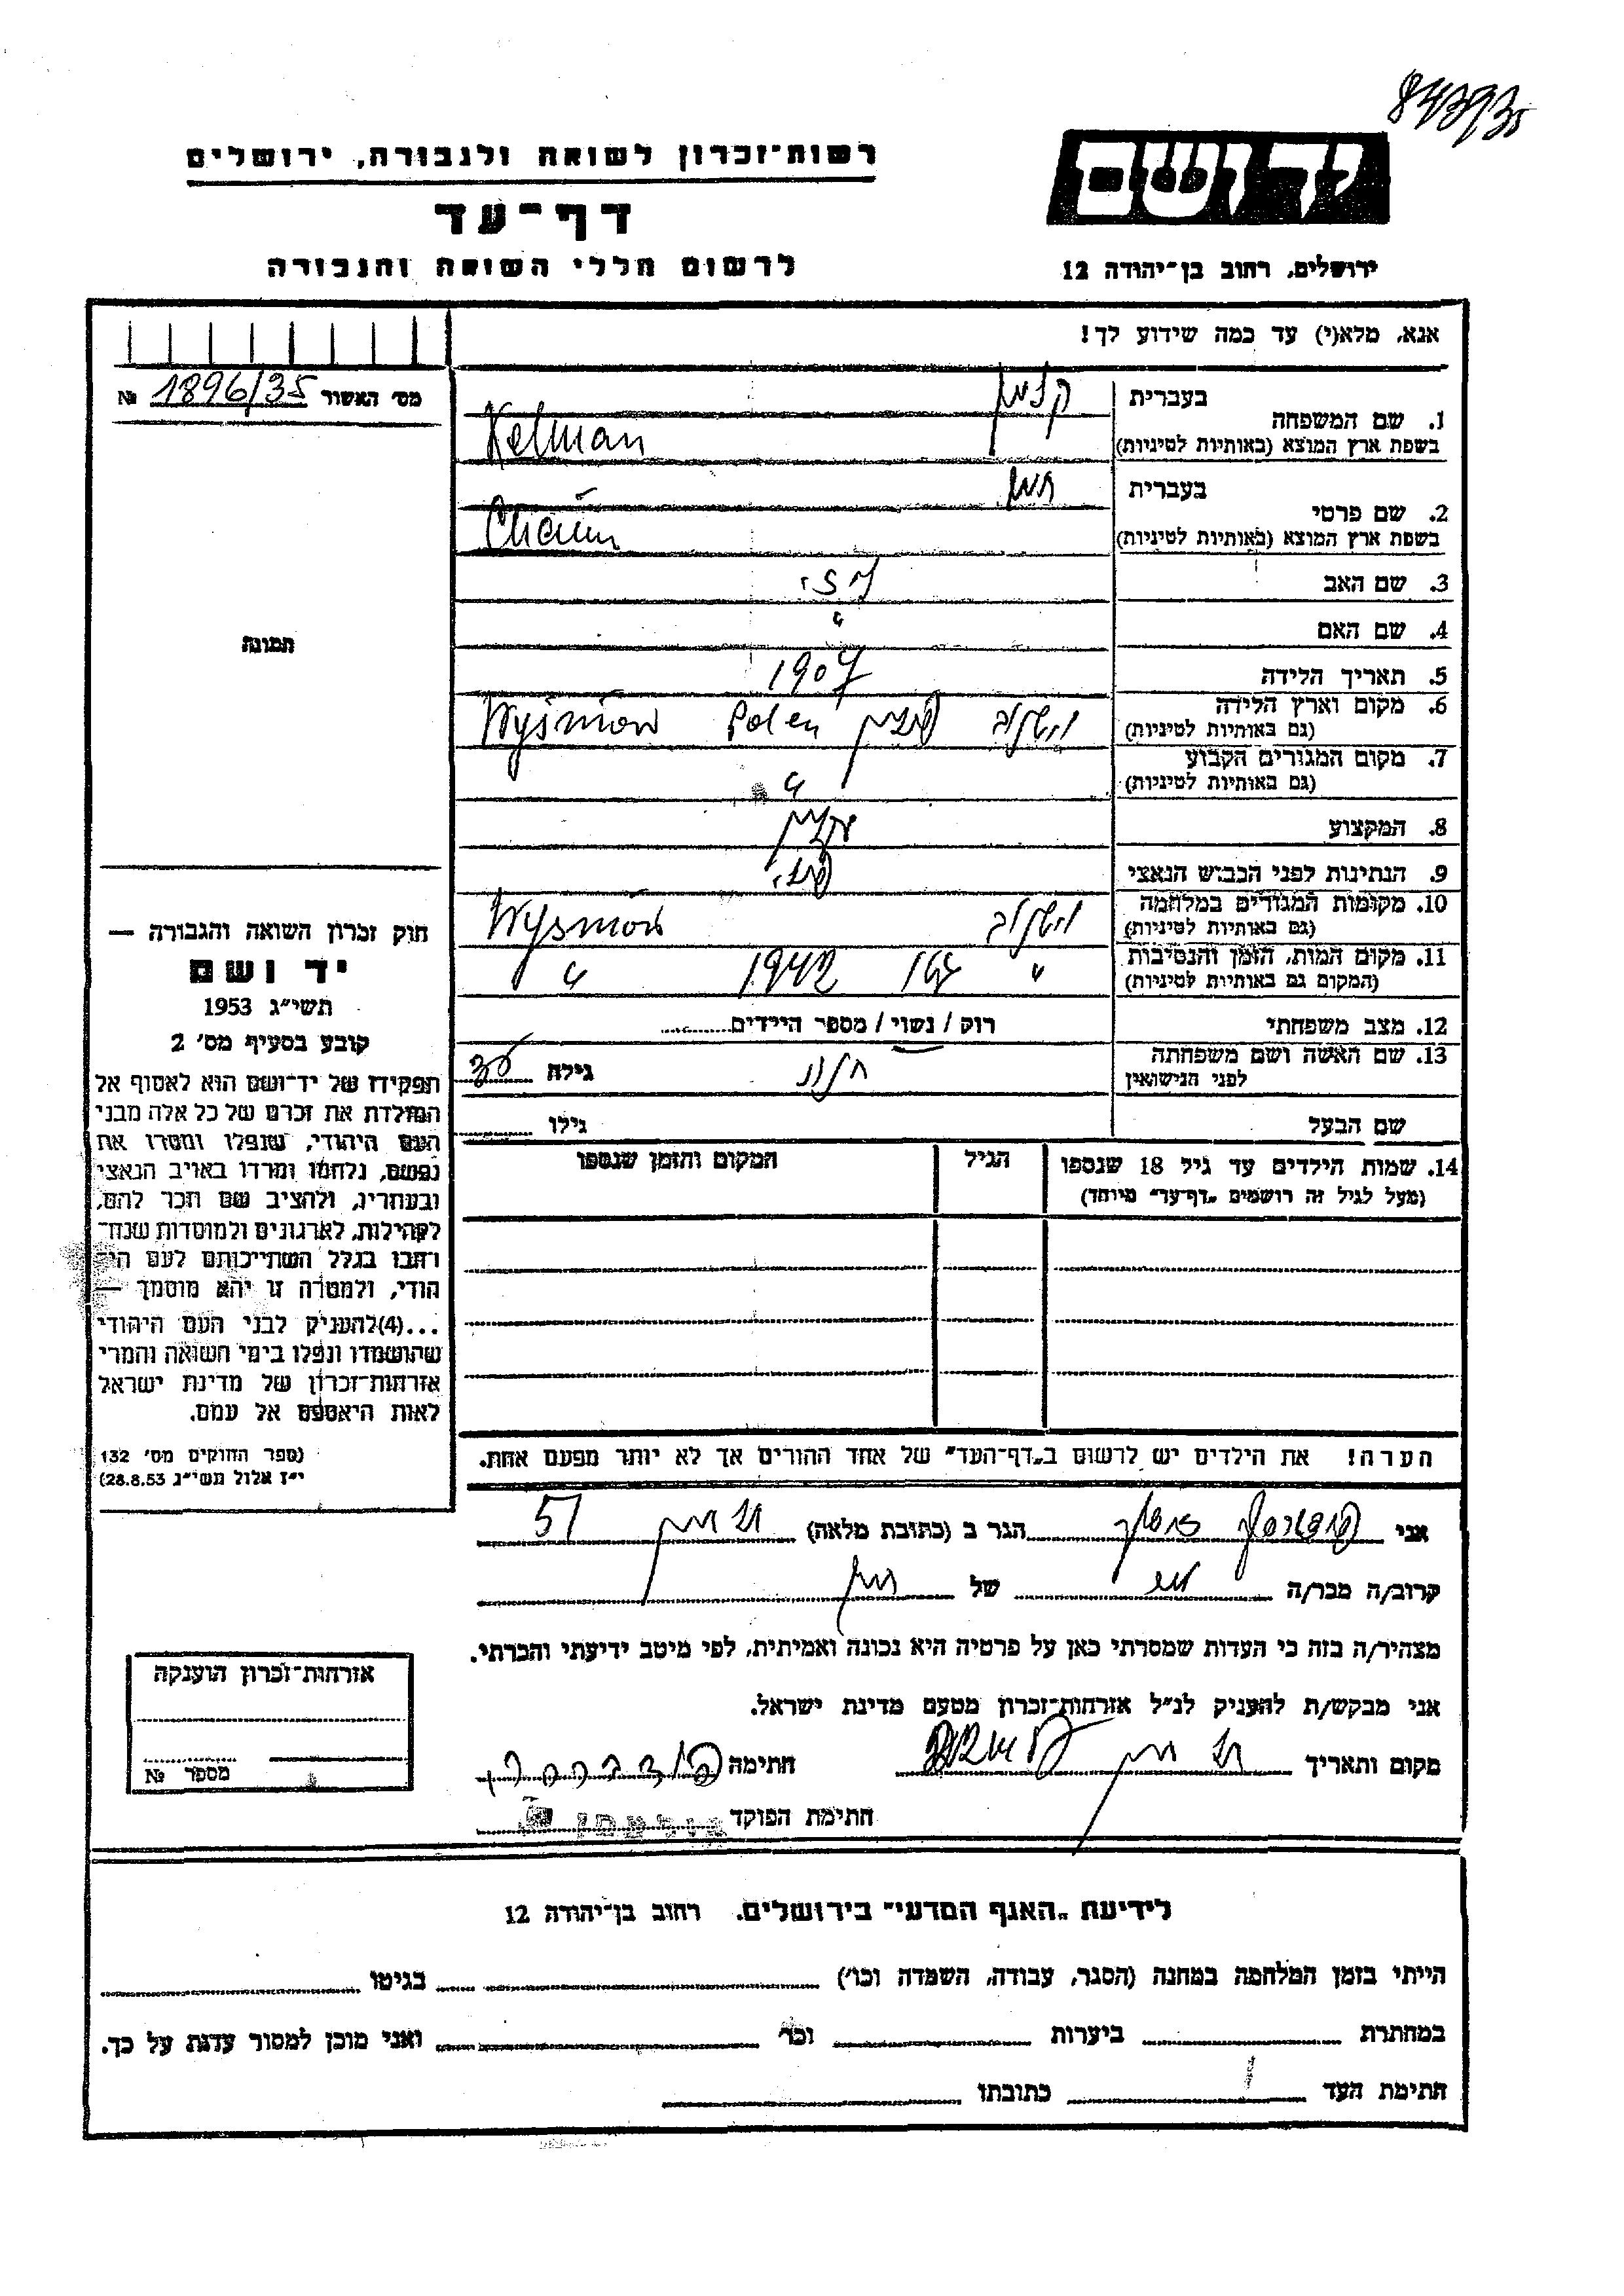 רשות-זכרון לשואה ולגבורה, ירושלים
דף-עד
לרשום חללי השואה והגבורה
יד ושם
ירושלים, רחוב בן-יהודה 12
אנא, מלא(י) עד כמה שידוע לך!
מס' האשור № 1896/35
1. שם המשפחה
בעברית קלמן
בשפת ארץ המוצא (באותיות לטיניות) Kelman
2. שם פרטי
בעברית חיים
בשפת ארץ המוצא (באותיות לטיניות) Chaim
3. שם האב
4. שם האם "
5. תאריך הלידה 1907
6. מקום וארץ הלידה
(גם באותיות לטיניות) פולין Polen Wyśniow
7. מקום המגורים הקבוע
(גם באותיות לטיניות) "
8. המקצוע
9. הנתינות לפני הכבוש הנאצי פולני
10. מקומות המגורים במלחמה
(גם באותיות לטיניות) Wyśniow
11. מקום המות, הזמן והנסיבות
(המקום גם באותיות לטיניות) " 1942 "
12. מצב משפחתי רוק / נשוי / מספר הילדים
13. שם האשה ושם משפחתה
לפני הנישואין גילה
שם הבעל גילו
14. שמות הילדים עד גיל 18 שנספו הגיל המקום והזמן שנספו
(מעל לגיל זה רושמים "דף-עד" מיוחד)
הערה! את הילדים יש לרשום ב"דף-העד" של אחד ההורים אך לא יותר מפעם אחת.
תמונה
חוק זכרון השואה והגבורה —
יד ושם
תשי"ג 1953
קובע בסעיף מס' 2
תפקידו של יד-ושם הוא לאסוף אל
המולדת את זכרם של כל אלה מבני
העם היהודי, שנפלו ומסרו את
נפשם, נלחמו ומרדו באויב הנאצי
ובעוזריו, ולהציב שם וזכר להם,
לקהילות, לארגונים ולמוסדות שנח-
רבו בגלל השתייכותם לעם הי-
הודי, ולמטרה זו יהא מוסמך —
...(4) להעניק לבני העם היהודי
שהושמדו ונפלו בימי השואה והמרי
אזרחות-זכרון של מדינת ישראל
לאות היאספם אל עמם.
(ספר החוקים מס' 132
י"ז אלול תשי"ג 28.8.53)
אני הגר ב (כתובת מלאה)
קרוב/ה מכר/ה של
מצהיר/ה בזה כי העדות שמסרתי כאן על פרטיה היא נכונה ואמיתית, לפי מיטב ידיעתי והכרתי.
אני מבקש/ת להעניק לנ"ל אזרחות-זכרון מטעם מדינת ישראל.
מקום ותאריך חתימה
חתימת הפוקד
אזרחות-זכרון הוענקה
מספר №
לידיעת "האגף המדעי" בירושלים. רחוב בן-יהודה 12
הייתי בזמן המלחמה במחנה (הסגר, עבודה, השמדה וכו') בגיטו
במחתרת ביערות וכו' ואני מוכן למסור עדות על כך.
חתימת העד כתובתו